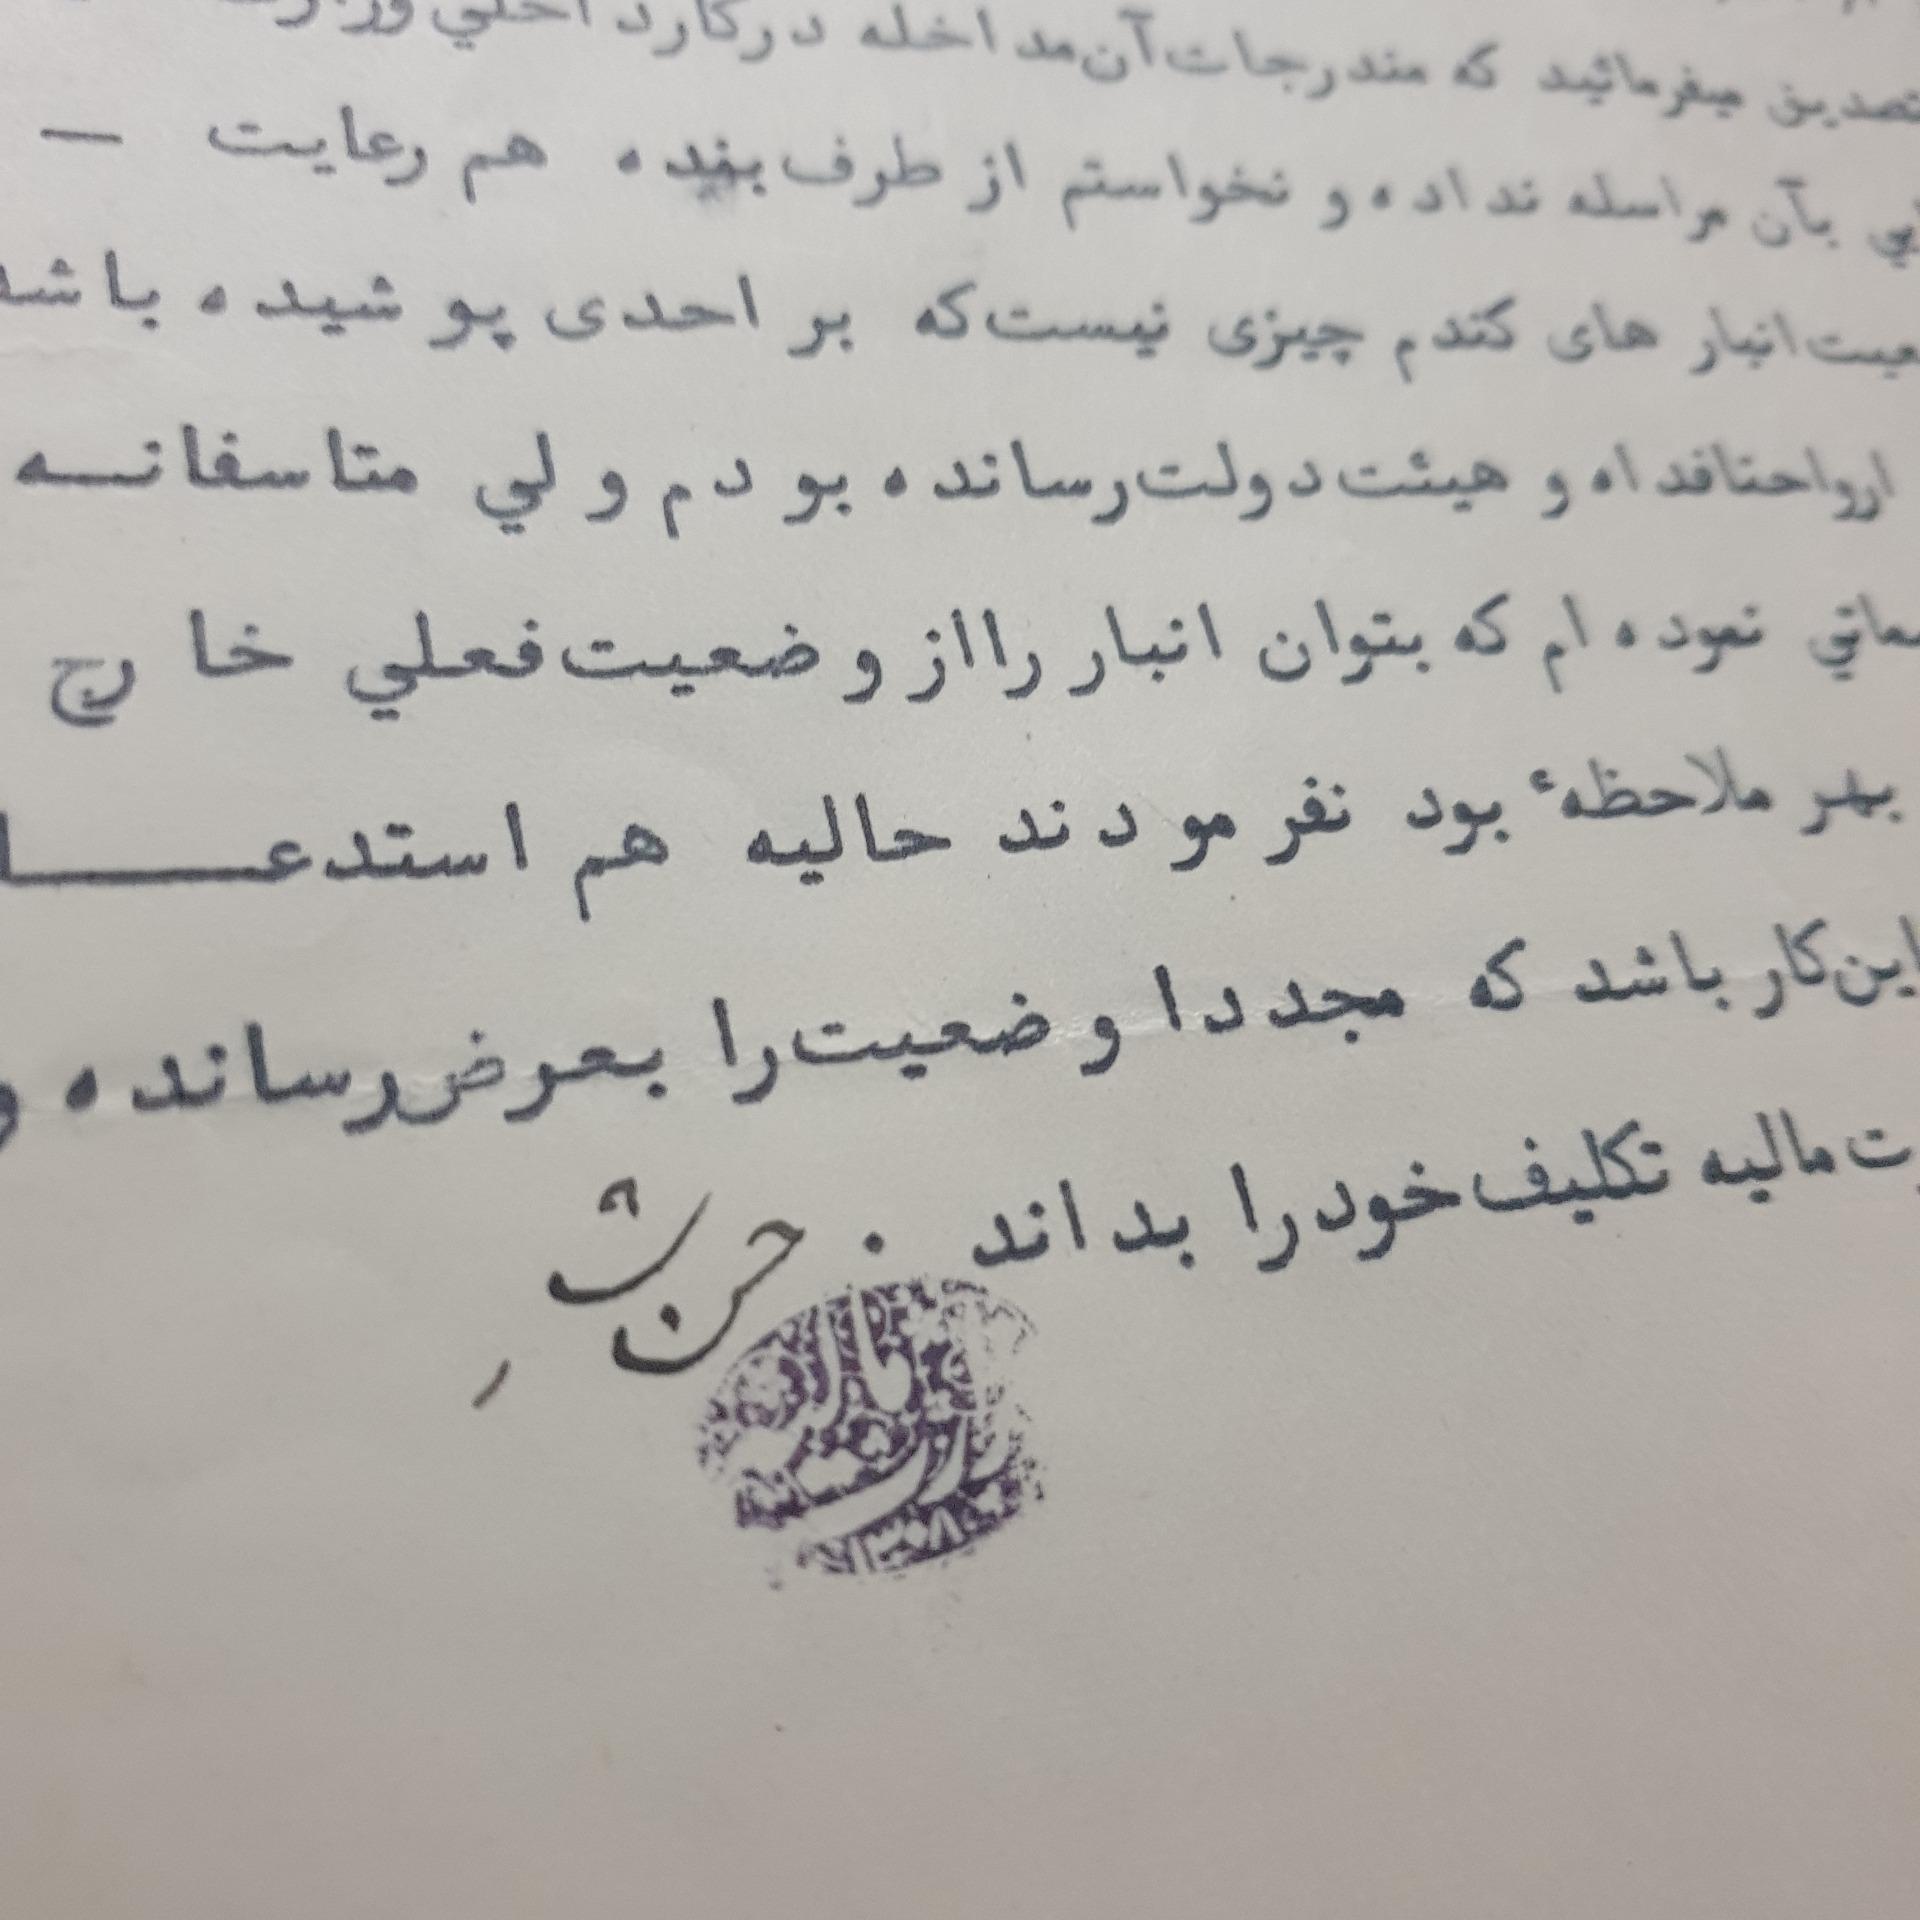 تصدیق میفرمائید که مندرجات آن مداخله در کار داخلي
بآن مراسله نداده و نخواستم از طرف بنده هم رعایت —
انبار های گندم چیزی نیست که بر احدی پوشیده باشد
ارواحنافداه و هیئت دولت رسانده بودم ولي متاسفانه
نموده ام که بتوان انبار را از وضعیت فعلي خارج
بهر ملاحظهٔ بود نفرمودند حالیه هم استدعا
این کار باشد که مجددا وضعیت را بعرض رسانده و
مالیه تکلیف خود را بداند .
۱۳۰۸